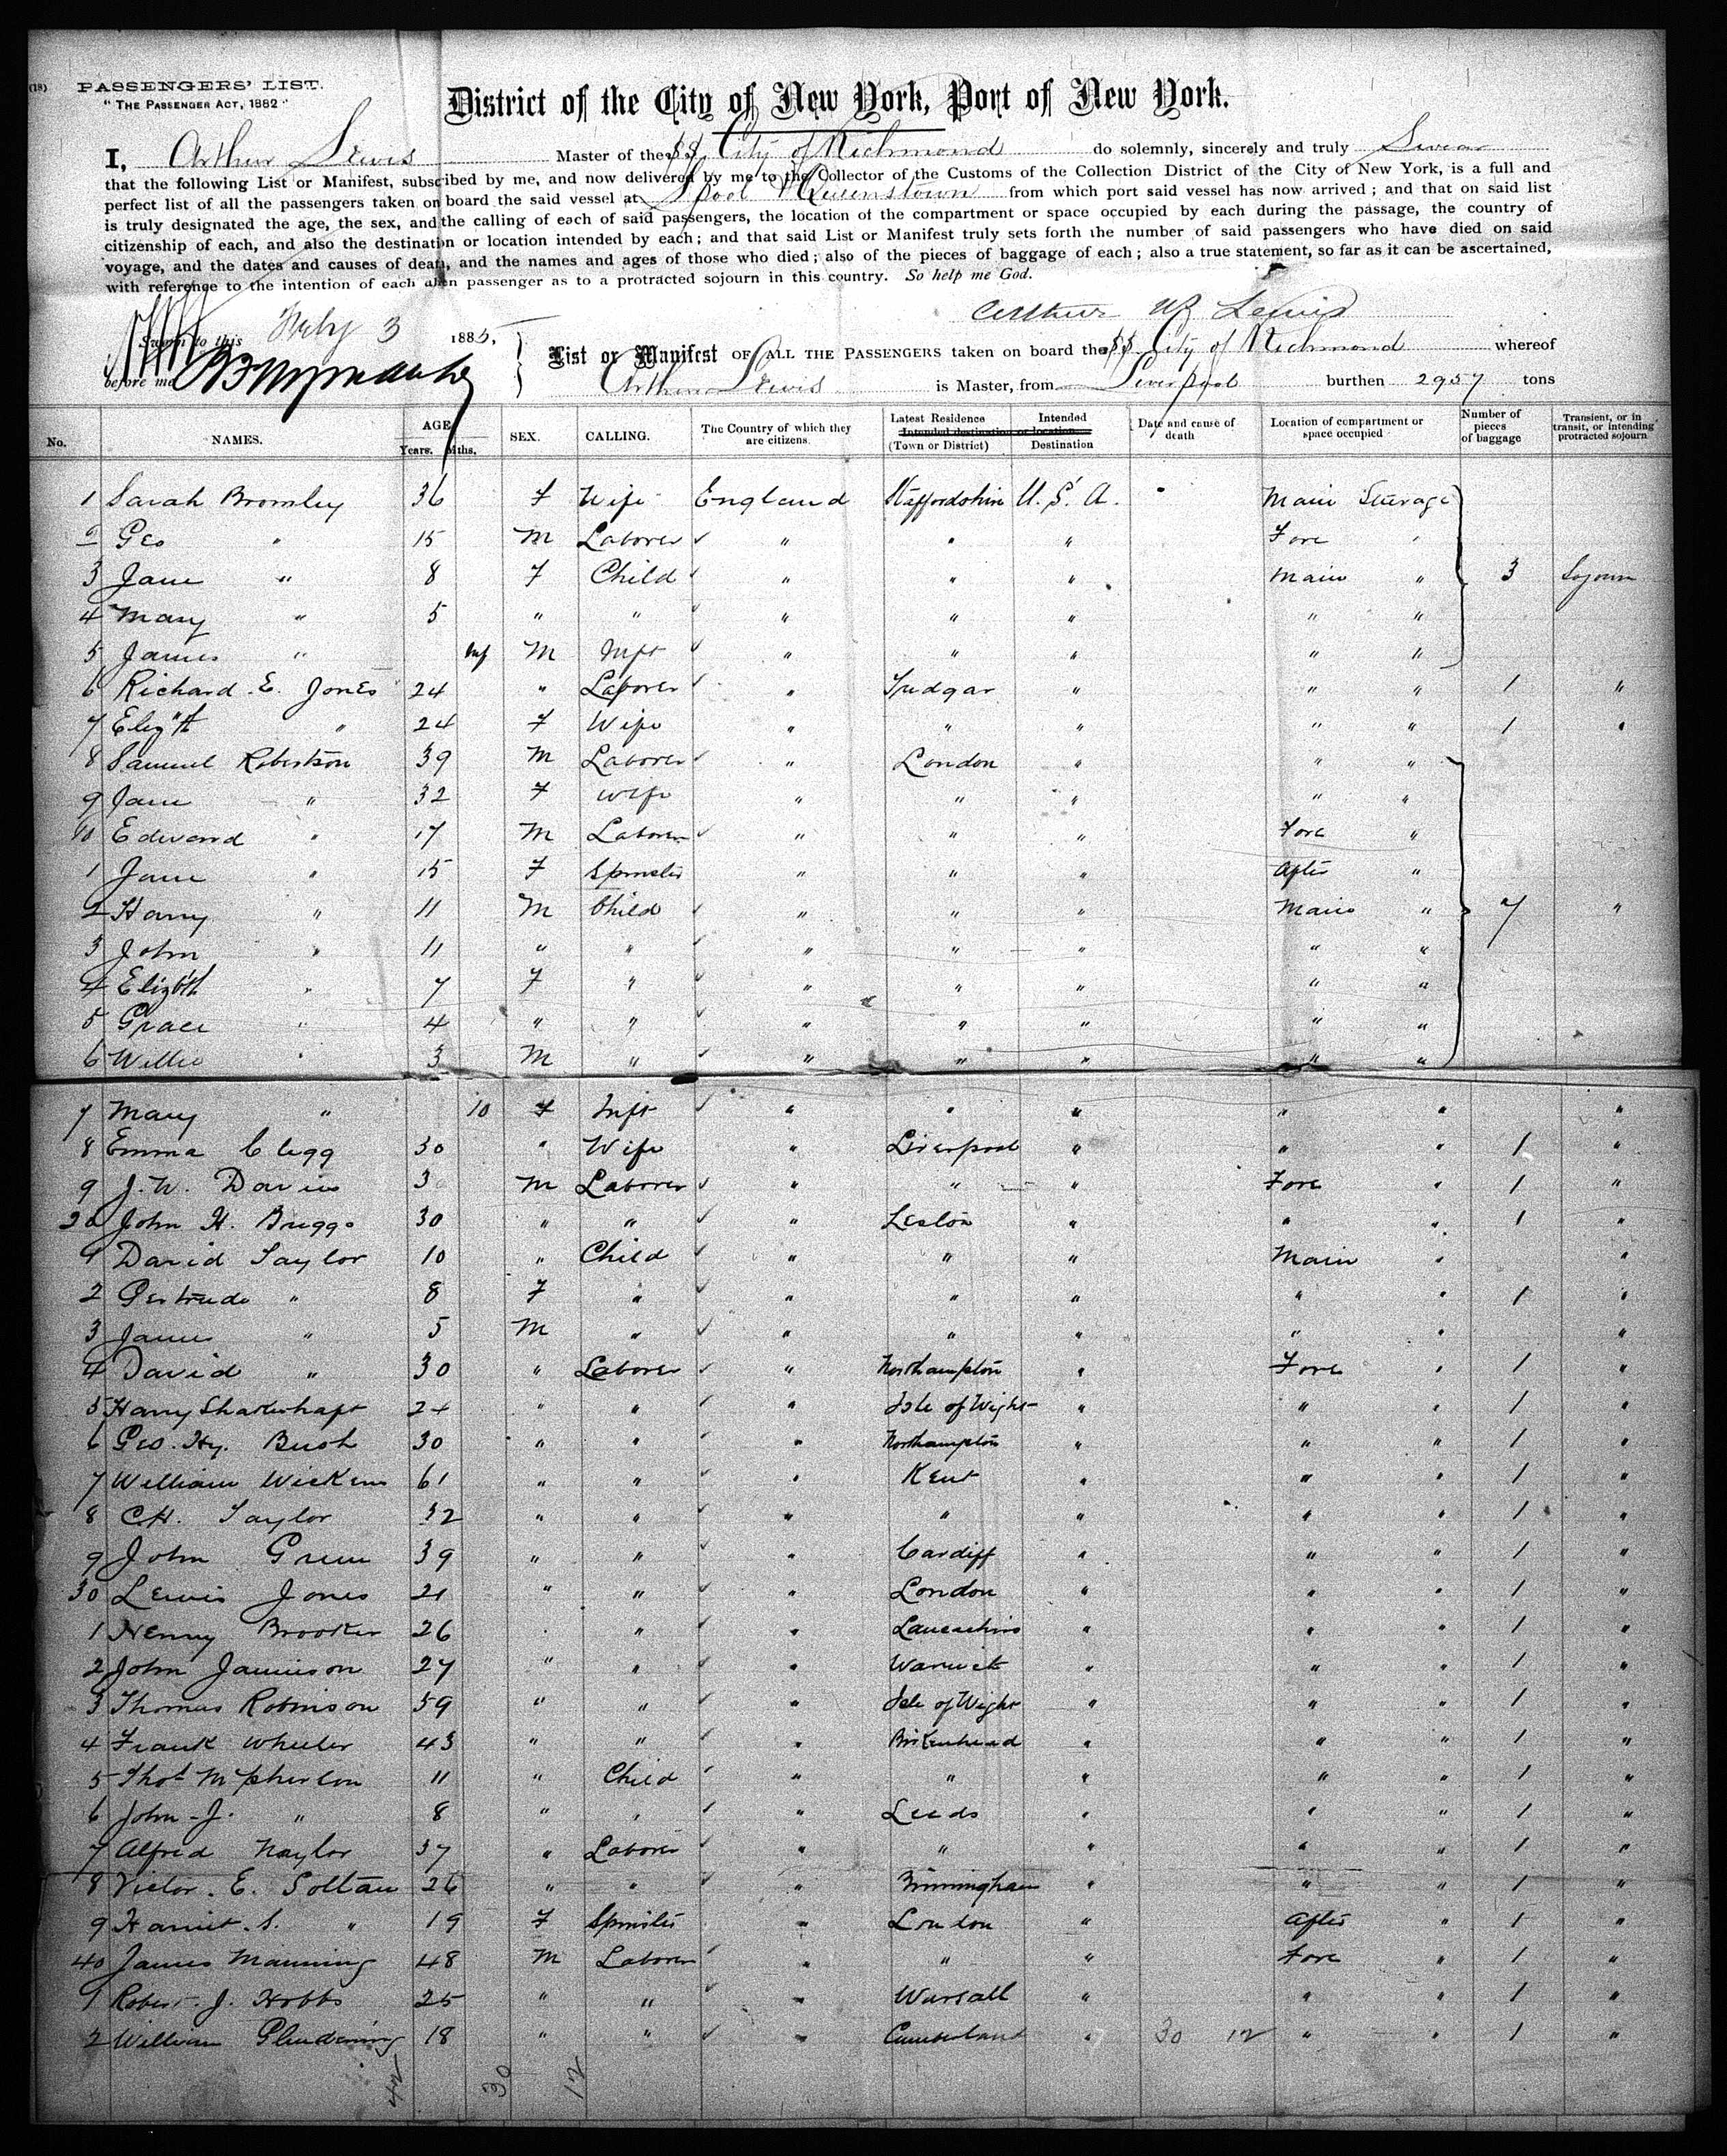 (18)
PASSENGERS' LIST.
"THE PASSENGER ACT, 1882"
District of the City of New York, Port of New York.
I, Arthur Lewis Master of the SS City of Richmond do solemnly, sincerely and truly Swear
that the following List or Manifest, subscribed by me, and now delivered by me to the Collector of the Customs of the Collection District of the City of New York, is a full and
perfect list of all the passengers taken on board the said vessel at L'pool & Queenstown from which port said vessel has now arrived; and that on said list
is truly designated the age, the sex, and the calling of each of said passengers, the location of the compartment or space occupied by each during the passage, the country of
citizenship of each, and also the destination or location intended by each; and that said List or Manifest truly sets forth the number of said passengers who have died on said
voyage, and the dates and causes of death, and the names and ages of those who died; also of the pieces of baggage of each; also a true statement, so far as it can be ascertained,
with reference to the intention of each alien passenger as to a protracted sojourn in this country. So help me God.
Arthur W Lewis
Sworn to this July 3 1885,
before me
List or Manifest OF ALL THE PASSENGERS taken on board the SS City of Richmond whereof
Arthur Lewis is Master, from Liverpool burthen 2957 tons
No. NAMES. AGE Years. Mths. SEX. CALLING. The Country of which they are citizens. Latest Residence Intended destination or location (Town or District) Intended Destination Date and cause of death Location of compartment or space occupied Number of pieces of baggage Transient, or in transit, or intending protracted sojourn
1 Sarah Bromley 36 F Wife England Staffordshire U.S.A. " Main Steerage
2 Geo " 15 M Laborer " " " Fore "
3 Jane " 8 F Child " " " Main " 3 Sojourn
4 Mary " 5 " " " " " " "
5 James " Inf M Inft " " " " "
6 Richard E. Jones 24 " Laborer " Tredgar " " " 1 "
7 Eliz'th " 24 F Wife " " " " " 1 "
8 Samuel Robertson 39 M Laborer " London " " "
9 Jane " 32 F Wife " " " " "
10 Edward " 17 M Laborer " " " Fore "
1 Jane " 15 F Spinster " " " After "
2 Harry " 11 M Child " " " Main " 7 "
3 John " 11 " " " " " " "
4 Eliz'bth " 7 F " " " " " "
5 Grace " 4 " " " " " " "
6 Willie " 3 M " " " " " "
7 Mary " 10 F Inft " " " " " "
8 Emma Clegg 30 " Wife " Liverpool " " " 1 "
9 J. W. Davies 3 M Laborer " " " Fore " 1 "
20 John H. Briggs 30 " " " " " " 1 "
1 David Taylor 10 " Child " " " Main " "
2 Gertrude " 8 F " " " " " " 1 "
3 James " 5 M " " " " " " "
4 David " 30 " Laborer " Northampton " Fore " 1 "
5 Harry Shakeshaft 24 " " " Isle of Wight " " " 1 "
6 Geo. Hy. Bush 30 " " " Northampton " " " 1 "
7 William Wickens 61 " " " Kent " " " 1 "
8 C.H. Taylor 32 " " " " " " " 1 "
9 John Green 39 " " " Cardiff " " " 1 "
30 Lewis Jones 21 " " " London " " " 1 "
1 Henry Brooker 26 " " " Lancashire " " " 1 "
2 John Jamieson 27 " " " Warwick " " " 1 "
3 Thomas Robinson 59 " " " Isle of Wight " " " 1 "
4 Frank Wheeler 43 " " " Birkenhead " " " 1 "
5 Thos McPherson 11 " Child " " " " " 1 "
6 John J. " 8 " " " Leeds " " " 1 "
7 Alfred Naylor 37 " Laborer " " " " " 1 "
8 Victor. E. Soltau 26 " " " Birmingham " " " 1 "
9 Harriet. S. " 19 F Spinster " London " After " 1 "
40 James Manning 48 M Laborer " " " Fore " 1 "
1 Robert. J. Hobbs 25 " " " Warsall " " " 1 "
2 William Glendening 18 " " " Cumberland " 30 12 " " 1 "
42 30 12